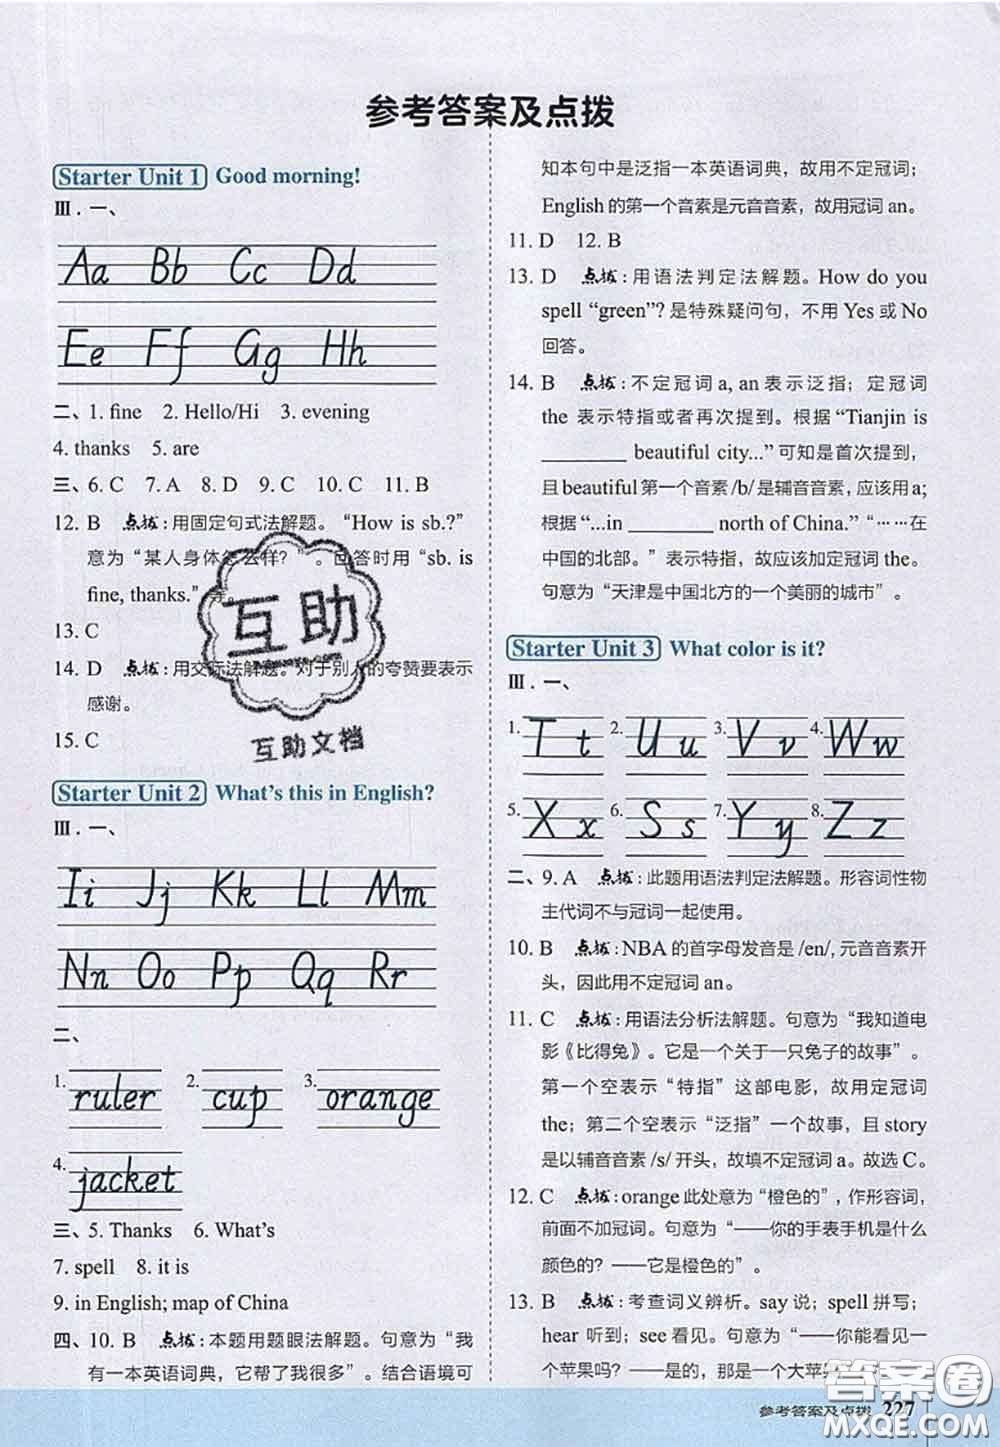 参考答案及点拨
Starter Unit 1 Good morning!
Ⅲ. 一、
Aa Bb Cc Dd
Ee Ff Gg Hh
二、1. fine 2. Hello/Hi 3. evening
4. thanks 5. are
三、6. C 7. A 8. D 9. C 10. C 11. B
12. B 点拨：用固定句式法解题。“How is sb.?”
意为“某人身体怎么样？”。回答时用“sb. is
fine, thanks.”等。
13. C
14. D 点拨：用交际法解题。对于别人的夸赞要表示
感谢。
15. C
Starter Unit 2 What's this in English?
Ⅲ. 一、
Ii Jj Kk Ll Mm
Nn Oo Pp Qq Rr
二、
1. ruler 2. cup 3. orange
4. jacket
三、5. Thanks 6. What's
7. spell 8. it is
9. in English; map of China
四、10. B 点拨：本题用题眼法解题。句意为“我
有一本英语词典，它帮了我很多”。结合语境可
知本句中是泛指一本英语词典，故用不定冠词；
English的第一个音素是元音音素，故用冠词 an。
11. D 12. B
13. D 点拨：用语法判定法解题。How do you
spell “green”? 是特殊疑问句，不用 Yes 或 No
回答。
14. B 点拨：不定冠词 a, an 表示泛指；定冠词
the 表示特指或者再次提到。根据“Tianjin is
________ beautiful city...” 可知是首次提到，
且 beautiful 第一个音素 /b/ 是辅音音素，应该用 a;
根据“...in ________ north of China.”“……在
中国的北部。”表示特指，故应该加定冠词 the。
句意为“天津是中国北方的一个美丽的城市”。
Starter Unit 3 What color is it?
Ⅲ. 一、
1. T t 2. U u 3. V v 4. W w
5. X x 6. S s 7. Y y 8. Z z
二、9. A 点拨：此题用语法判定法解题。形容词性物
主代词不与冠词一起使用。
10. B 点拨：NBA 的首字母发音是 /en/, 元音音素开
头，因此用不定冠词 an。
11. C 点拨：用语法分析法解题。句意为“我知道电
影《比得兔》。它是一个关于一只兔子的故事”。
第一个空表示“特指”这部电影，故用定冠词
the；第二个空表示“泛指”一个故事，且 story
是以辅音音素 /s/ 开头，故填不定冠词 a。故选 C。
12. C 点拨：orange 此处意为“橙色的”，作形容词，
前面不加冠词。句意为“——你的手表手机是什么
颜色的？——它是橙色的”。
13. B 点拨：考查词义辨析。say 说；spell 拼写；
hear 听到；see 看见。句意为“——你能看见一
个苹果吗？——是的，那是一个大苹果
参考答案及点拨 227
互助
互助文档
答案圈
MXQE.COM